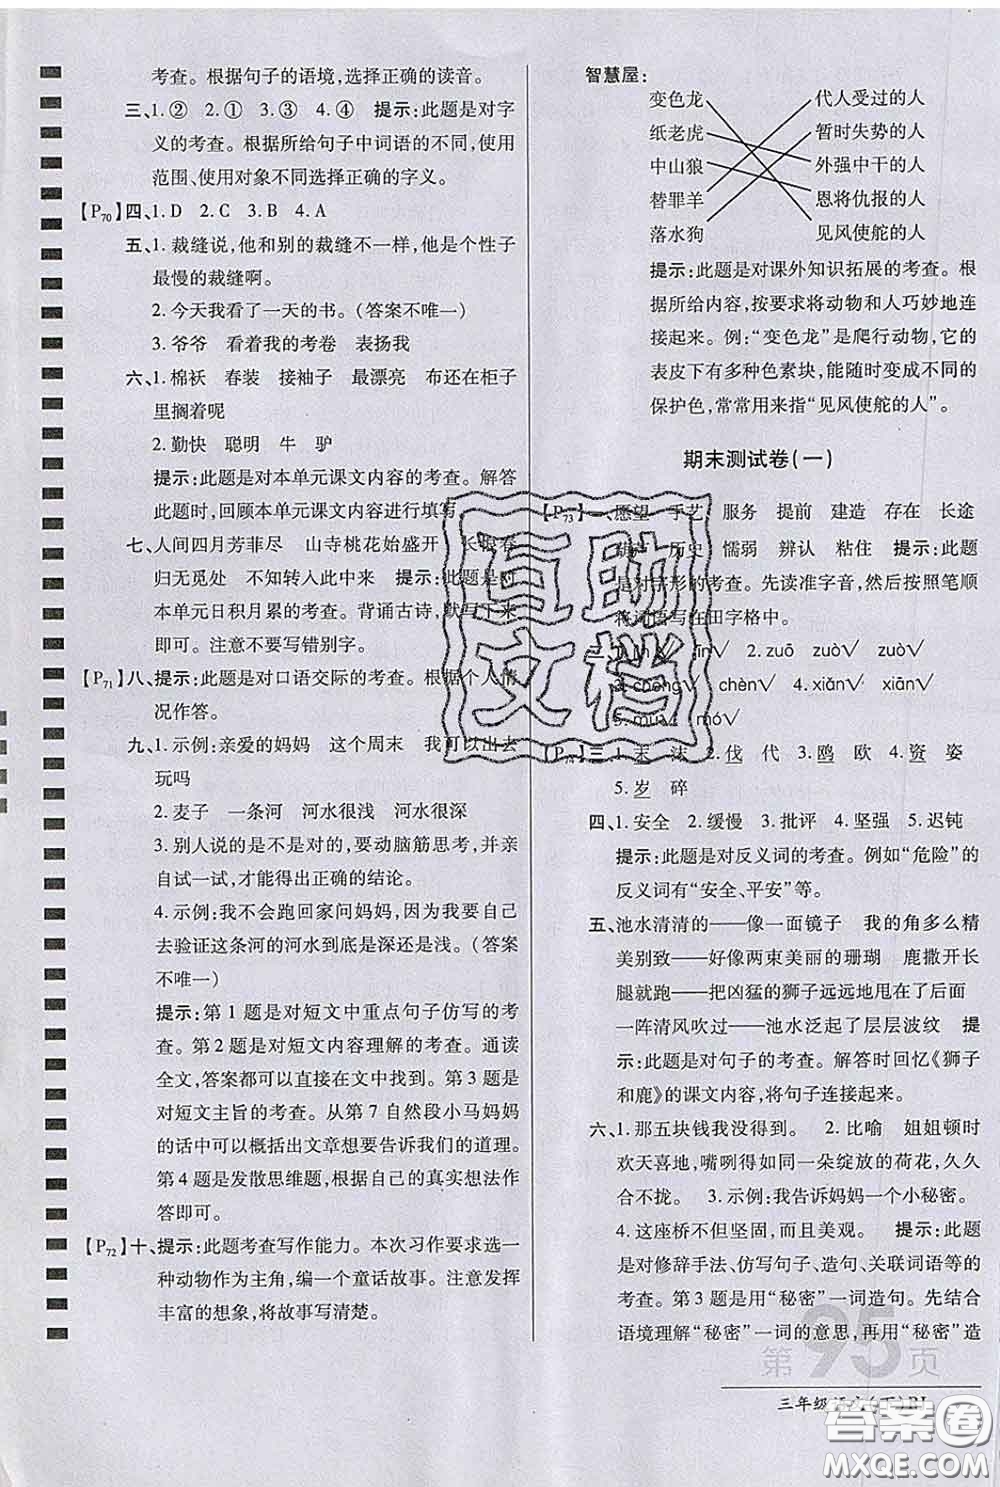 考查。根据句子的语境,选择正确的读音。
三、1.② 2.① 3.③ 4.④ 提示:此题是对字
义的考查。根据所给句子中词语的不同,使用
范围、使用对象不同选择正确的字义。
【P70】四、1. D 2. C 3. B 4. A
五、1. 裁缝说,他和别的裁缝不一样,他是个性子
最慢的裁缝啊。
2. 今天我看了一天的书。(答案不唯一)
3. 爷爷 看着我的考卷 表扬我
六、1. 棉袄 春装 接袖子 最漂亮 布还在柜子
里搁着呢
2. 勤快 聪明 牛 驴
提示:此题是对本单元课文内容的考查。解答
此题时,回顾本单元课文内容进行填写。
七、人间四月芳菲尽 山寺桃花始盛开 长恨春
归无觅处 不知转入此中来 提示:此题是对
本单元日积月累的考查。背诵古诗,默写下来
即可。注意不要写错别字。
【P71】八、提示:此题是对口语交际的考查。根据个人情
况作答。
九、1. 示例:亲爱的妈妈 这个周末 我可以出去
玩吗
2. 麦子 一条河 河水很浅 河水很深
3. 别人说的是不是对的,要动脑筋思考,并亲
自试一试,才能得出正确的结论。
4. 示例:我不会跑回家问妈妈,因为我要自己
去验证这条河的河水到底是深还是浅。(答案
不唯一)
提示:第 1 题是对短文中重点句子仿写的考
查。第 2 题是对短文内容理解的考查。通读
全文,答案都可以直接在文中找到。第 3 题是
对短文主旨的考查。从第 7 自然段小马妈妈
的话中可以概括出文章想要告诉我们的道理。
第 4 题是发散思维题,根据自己的真实想法作
答即可。
【P72】十、提示:此题考查写作能力。本次习作要求选一
种动物作为主角,编一个童话故事。注意发挥
丰富的想象,将故事写清楚。
智慧屋:
变色龙 代人受过的人
纸老虎 暂时失势的人
中山狼 外强中干的人
替罪羊 恩将仇报的人
落水狗 见风使舵的人
提示:此题是对课外知识拓展的考查。根
据所给内容,按要求将动物和人巧妙地连
接起来。例:“变色龙”是爬行动物,它的
表皮下有多种色素块,能随时变成不同的
保护色,常常用来指“见风使舵的人”。
期末测试卷(一)
【P73】一、愿望 手艺 服务 提前 建造 存在 长途
历史 懦弱 辨认 粘住 提示:此题
是对字形的考查。先读准字音,然后按照笔顺
将词语写在田字格中。
√ 2. zuō zuò√ zuò√
3. chēng√ chèn√ 4. xiǎn√ xiān√
5. mú√ mó√
三、1. 末 沫 2. 伐 代 3. 鸥 欧 4. 资 姿
5. 岁 碎
四、1. 安全 2. 缓慢 3. 批评 4. 坚强 5. 迟钝
提示:此题是对反义词的考查。例如“危险”的
反义词有“安全、平安”等。
五、池水清清的——像一面镜子 我的角多么精
美别致——好像两束美丽的珊瑚 鹿撒开长
腿就跑——把凶猛的狮子远远地甩在后面
一阵清风吹过——池水泛起了层层波纹 提
示:此题是对句子的考查。解答时回忆《狮子
和鹿》的课文内容,将句子连接起来。
六、1. 那五块钱我没得到。 2. 比喻 姐姐顿时
欢天喜地,嘴咧得如同一朵绽放的荷花,久久
合不拢。 3. 示例:我告诉妈妈一个小秘密。
4. 这座桥不但坚固,而且美观。 提示:此题
是对修辞手法、仿写句子、造句、关联词语等的
考查。第 3 题是用“秘密”一词造句。先结合
语境理解“秘密”一词的意思,再用“秘密”造
第95页
三年级语文(下)RJ
互助
文档
答案卷
MXQE.COM